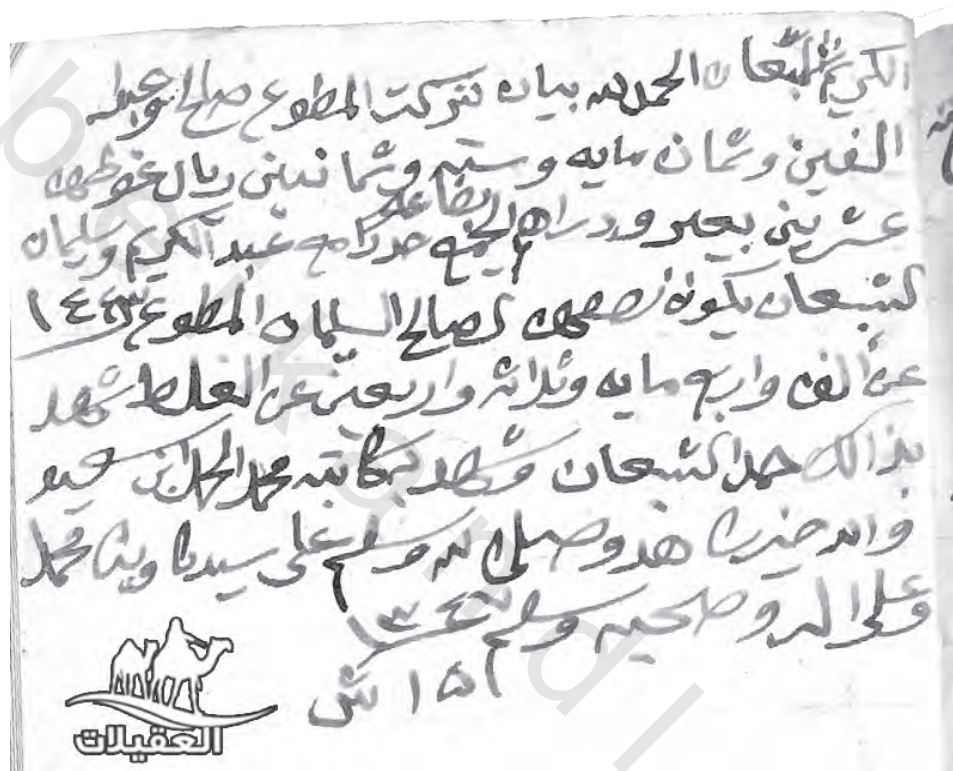 الكريم الشبعان الحمد لله بيان شركت المطوع صالح وعبد
الفين وثمان مايه وسته وثمانين ريال عوضهن
عشرين بعير ودراهم البضاعة الجميع حدرا مع عبد الكريم وسليمان
الشبعان يكون نصفهن لصالح السليمان المطوع ١٤٤٣
عن الف واربع مايه وثلاثه واربعين عن الغلط شهد
بذالك حمد الشبعان وشهد به كاتبه محمد الحمد ابن سعيد
والله خير شاهد وصلى الله وسلم على سيدنا ونبينا محمد
وعلى اله وصحبه وسلم ١٣٤٢
١٥ ش
العقيلات
beikandl